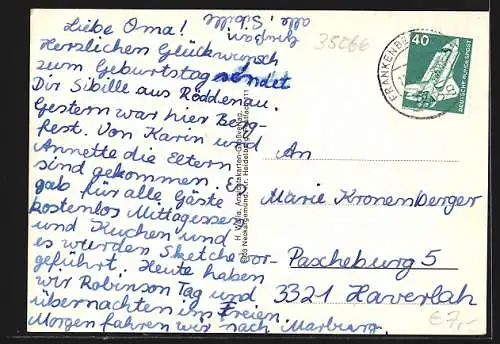 Liebe Oma!
Herzlichen Glückwunsch
zum Geburtstag sendet
Dir Sibille aus Röddenau.
Gestern war hier Berg-
fest. Von Karin und
Annette die Eltern
sind gekommen. Es
gab für alle Gäste
kostenlos Mittagessen
und Kuchen und
es wurden Sketche vor-
geführt. Heute haben
wir Robinson Tag und
übernachten im Freien.
Morgen fahren wir nach Marburg.
alle, Sibille
35066
FRANKENBE
40
DEUTSCHE BUNDESPOST
An
Marie Kronenberger
Pascheburg 5
3321 Haverlah
€ 7,-